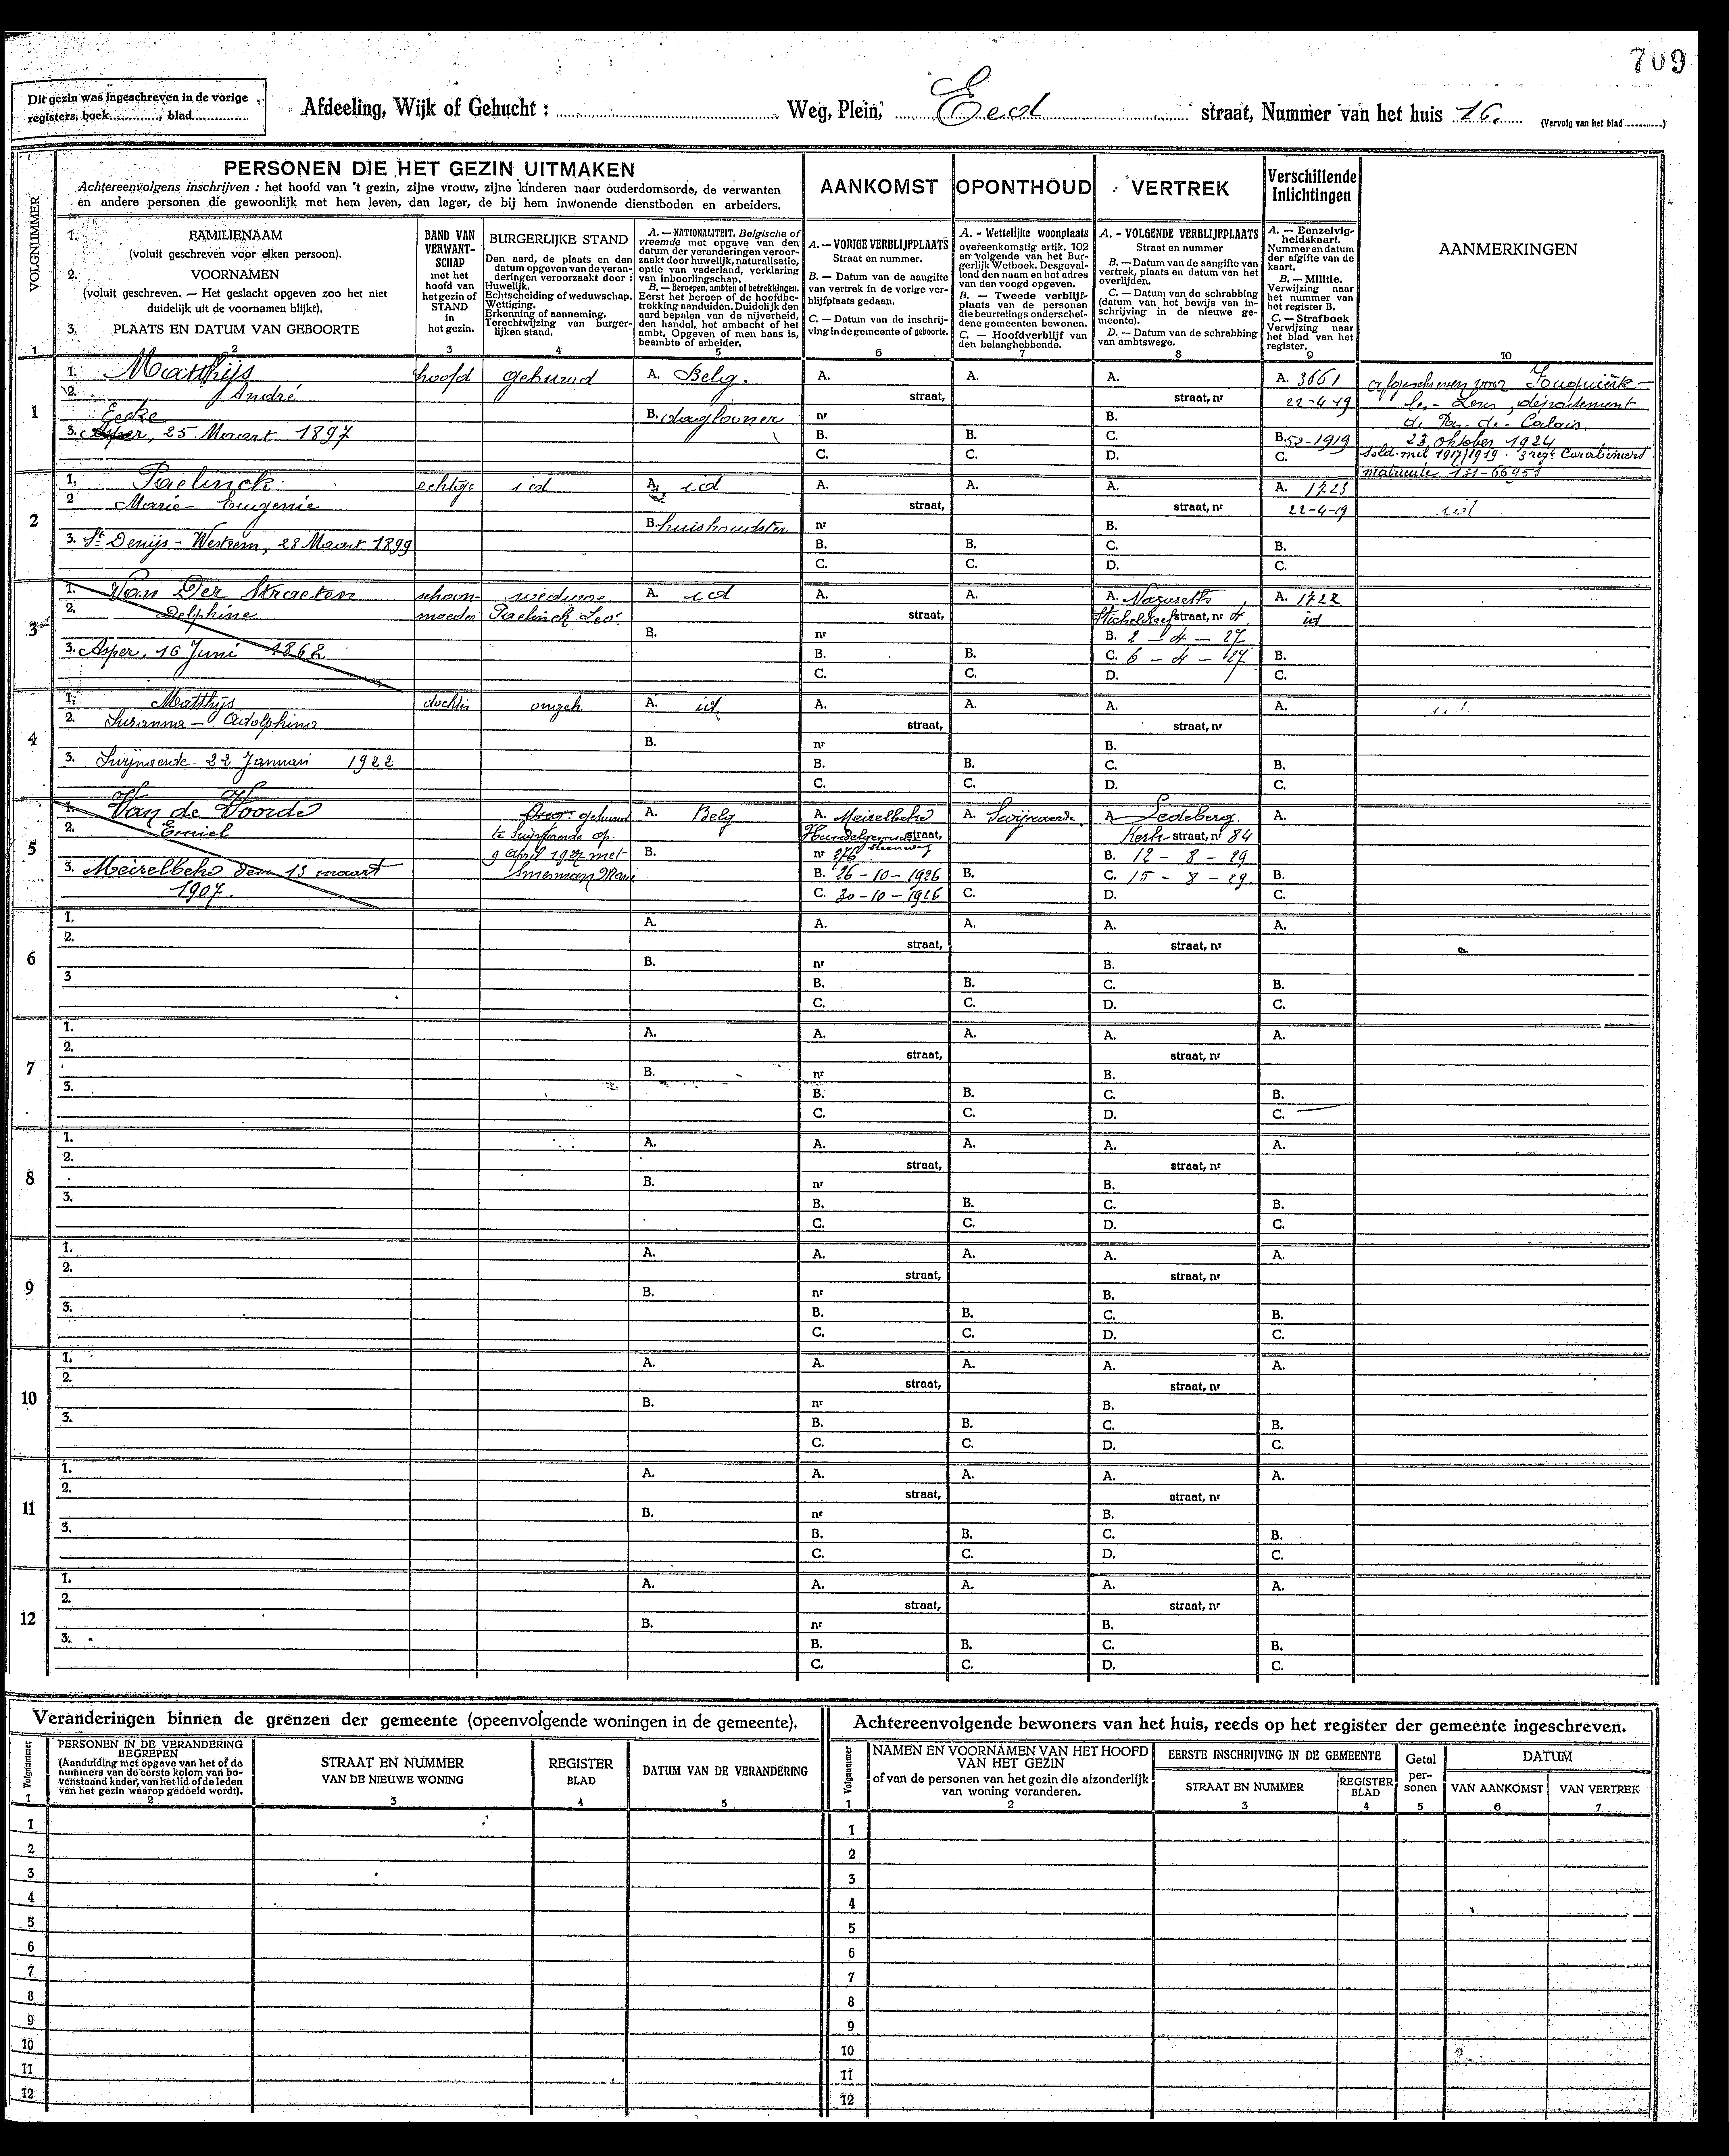 709
Dit gezin was ingeschreven in de vorige
registers, boek............, blad..............
Afdeeling, Wijk of Gehucht : .............. Weg, Plein, Eed straat, Nummer van het huis 16. (Vervolg van het blad ..........)
PERSONEN DIE HET GEZIN UITMAKEN
Achtereenvolgens inschrijven : het hoofd van 't gezin, zijne vrouw, zijne kinderen naar ouderdomsorde, de verwanten
en andere personen die gewoonlijk met hem leven, dan lager, de bij hem inwonende dienstboden en arbeiders.
AANKOMST
OPONTHOUD
VERTREK
Verschillende
Inlichtingen
VOLGNUMMER
1. FAMILIENAAM
(voluit geschreven voor elken persoon).
2. VOORNAMEN
(voluit geschreven. — Het geslacht opgeven zoo het niet
duidelijk uit de voornamen blijkt).
3. PLAATS EN DATUM VAN GEBOORTE
BAND VAN
VERWANT-
SCHAP
met het
hoofd van
het gezin of
STAND
in
het gezin.
BURGERLIJKE STAND
Den aard, de plaats en den
datum opgeven van de veran-
deringen veroorzaakt door :
Huwelijk.
Echtscheiding of weduwschap.
Wettiging.
Erkenning of aanneming.
Terechtwijzing van burger-
lijken stand.
A. — NATIONALITEIT. Belgische of
vreemde met opgave van den
datum der veranderingen veroor-
zaakt door huwelijk, naturalisatie,
optie van vaderland, verklaring
van inboorlingschap.
B. — Beroepen, ambten of betrekkingen.
Eerst het beroep of de hoofdbe-
trekking aanduiden. Duidelijk den
aard bepalen van de nijverheid,
den handel, het ambacht of het
ambt. Opgeven of men baas is,
beambte of arbeider.
A. — VORIGE VERBLIJFPLAATS
Straat en nummer.
B. — Datum van de aangifte
van vertrek in de vorige ver-
blijfplaats gedaan.
C. — Datum van de inschrij-
ving in de gemeente of geboorte.
A. - Wettelijke woonplaats
overeenkomstig artik. 102
en volgende van het Bur-
gerlijk Wetboek. Desgeval-
lend den naam en het adres
van den voogd opgeven.
B. — Tweede verblijf-
plaats van de personen
die beurtelings onderschei-
dene gemeenten bewonen.
C. — Hoofdverblijf van
den belanghebbende.
A. - VOLGENDE VERBLIJFPLAATS
Straat en nummer
B. — Datum van de aangifte van
vertrek, plaats en datum van het
overlijden.
C. — Datum van de schrabbing
(datum van het bewijs van in-
schrijving in de nieuwe ge-
meente).
D. — Datum van de schrabbing
van ambtswege.
A. — Eenzelvig-
heidskaart.
Nummer en datum
der afgifte van de
kaart.
B. — Militie.
Verwijzing naar
het nummer van
het register B.
C. — Strafboek
Verwijzing naar
het blad van het
register.
AANMERKINGEN
1 2 3 4 5 6 7 8 9 10
1
1. Matthijs hoofd gehuwd A. Belg. A. A. A. A. 3661 afgeschreven voor Fouquière-
2. André straat, straat, nr 22-4-19 les-Lens, département
Eecke B. daglooner nr B. de Pas-de-Calais
3. Asper, 25 Maart 1897 B. B. C. B. 52-1919 23 oktober 1924
C. C. D. C. Sold. mil 1917/1919. 3 regt Carabiniers
matricule 131-66951
2
1. Paelinck echtge id A. id A. A. A. A. 1723
2 Marie-Eugenie straat, straat, nr 22-4-19 id
B. huishoudster nr B.
3. St Denijs-Westrem, 28 Maart 1899 B. B. C. B.
C. C. D. C.
3
1. Van Der Straeten schoon- weduwe A. id A. A. A. Nazareth A. 1722
2. Delphine moeder Paelinck Leo. straat, straat, nr id
B. nr B. 2-4-27
3. Asper, 16 Juni 1862 B. B. C. 6-4-27 B.
C. C. D. C.
4
1. Matthijs dochter ongeh. A. id. A. A. A. A. id
2. Suzanna-Adolphina straat, straat, nr
B. nr B.
3. Swijnaerde 22 Januari 1922 B. B. C. B.
C. C. D. C.
5
1. Van de Voorde gehuwd A. Belg A. Meirelbeke A. Swijnaerde A. Ledeberg. A.
2. Emiel te Swijnaerde op straat, Kerk-straat, nr 84
9 April 1927 met B. nr 276 steenweg B. 12-8-29
3. Meirelbeke den 13 maart Smesman Marie B. 26-10-1926 B. C. 15-8-29. B.
1907. C. 30-10-1926 C. D. C.
6
1. A. A. A. A. A.
2. straat, straat, nr
B. nr B.
3 B. B. C. B.
C. C. D. C.
7
1. A. A. A. A. A.
2. straat, straat, nr
B. nr B.
3. B. B. C. B.
C. C. D. C.
8
1. A. A. A. A. A.
2. straat, straat, nr
B. nr B.
3. B. B. C. B.
C. C. D. C.
9
1. A. A. A. A. A.
2. straat, straat, nr
B. nr B.
3. B. B. C. B.
C. C. D. C.
10
1. A. A. A. A. A.
2. straat, straat, nr
B. nr B.
3. B. B. C. B.
C. C. D. C.
11
1. A. A. A. A. A.
2. straat, straat, nr
B. nr B.
3. B. B. C. B.
C. C. D. C.
12
1. A. A. A. A. A.
2. straat, straat, nr
B. nr B.
3. B. B. C. B.
C. C. D. C.
Veranderingen binnen de grenzen der gemeente (opeenvolgende woningen in de gemeente).
Volgnummer
PERSONEN IN DE VERANDERING
BEGREPEN
(Aanduiding met opgave van het of de
nummers van de eerste kolom van bo-
venstaand kader, van het lid of de leden
van het gezin waarop gedoeld wordt).
STRAAT EN NUMMER
VAN DE NIEUWE WONING
REGISTER
BLAD
DATUM VAN DE VERANDERING
1 2 3 4 5
1
2
3
4
5
6
7
8
9
10
11
12
Achtereenvolgende bewoners van het huis, reeds op het register der gemeente ingeschreven.
Volgnummer
NAMEN EN VOORNAMEN VAN HET HOOFD
VAN HET GEZIN
of van de personen van het gezin die afzonderlijk
van woning veranderen.
EERSTE INSCHRIJVING IN DE GEMEENTE
STRAAT EN NUMMER
REGISTER
BLAD
Getal
per-
sonen
DATUM
VAN AANKOMST
VAN VERTREK
1 2 3 4 5 6 7
1
2
3
4
5
6
7
8
9
10
11
12